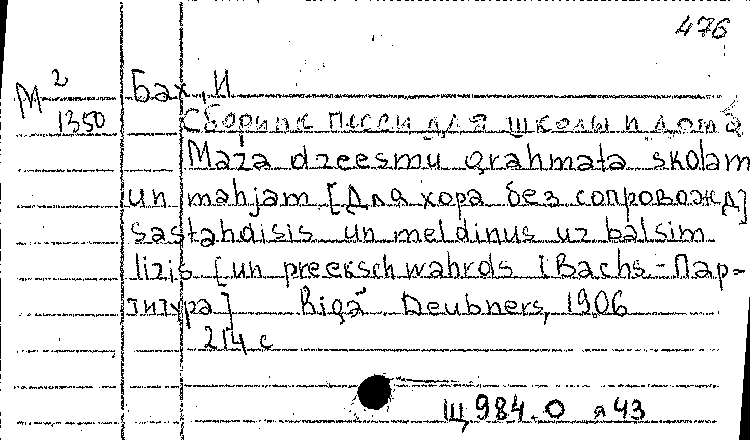 476
М 2 Бах, И
1350 Сборник песен для школы и дома
Maza dzeesmu grahmata skolam
un mahjam [Для хора без сопровожд]
sastahdisis un meldinus uz balsim
lizis [un preekschwahrds I Bachs - Пар-
титура] Rigā Deubners, 1906
214 с
Щ984.0 я43